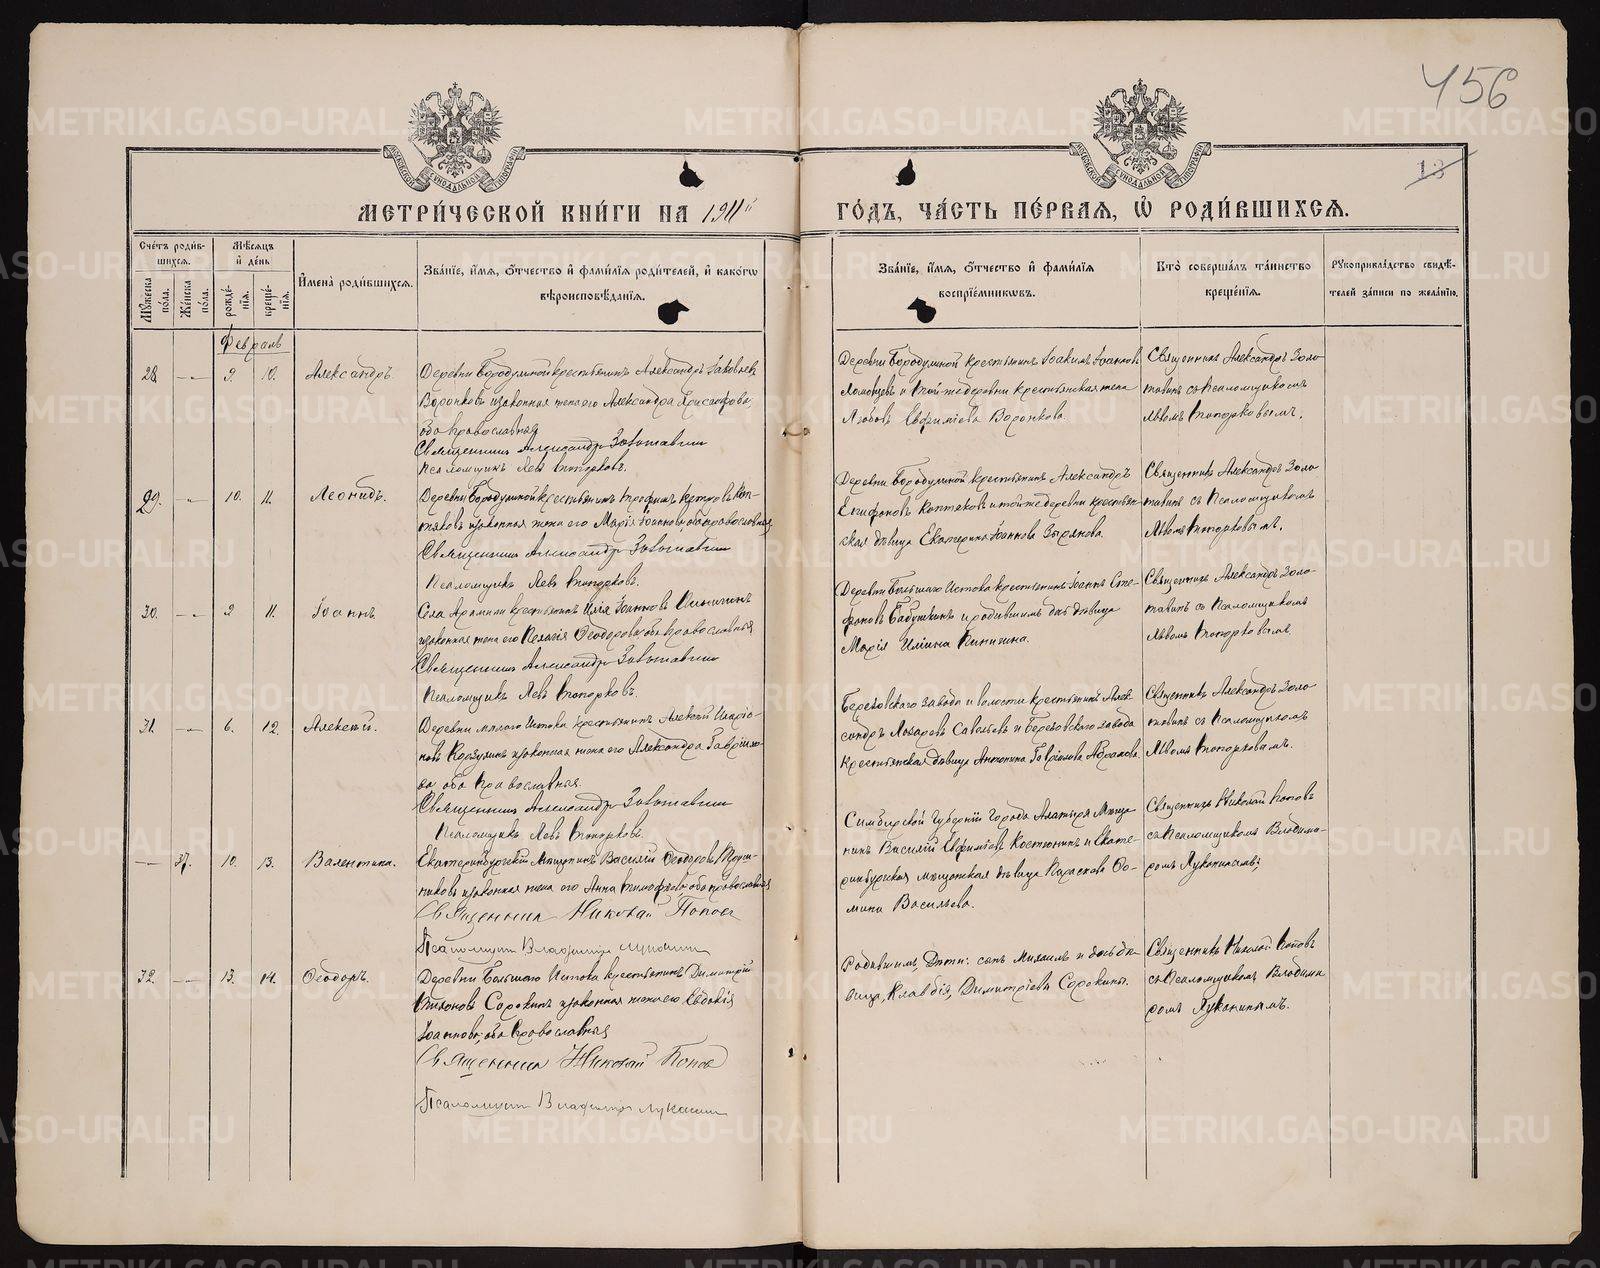 456
13
МЕТРИ́ЧЕСКОЙ КНИ́ГИ НА 1911й
ГО́ДЪ, ЧА́СТЬ ПЕ́РВАЯ, Ѽ РОДИ́ВШИХСЯ.
Сче́тъ роди́в-
шихся.
Мѣ́сяцъ
и҆ де́нь
Му́жеска по́ла.
Же́нска по́ла.
рожде́-нїя.
креще́-нїя.
И҆мена̀ роди́вшихся.
Зва́нїе, и҆́мя, ѻ҆́тчество и҆ фами́лїя роди́телей, и҆ како́гѡ
вѣроисповѣ́данїя.
Зва́нїе, и҆́мя, ѻ҆́тчество и҆ фами́лїя
воспрїе́мникѡвъ.
Кто̀ соверша́лъ та́инство
креще́нїя.
Рукоприкла́дство свидѣ́-
телей за́писи по жела́нїю.
Февраль
28. — 9. 10. Александръ.
Деревни Бородулиной крестьянинъ Александръ Іаковлевъ
Воронковъ и законная жена его Александра Христофорова,
оба православныя
Священникъ Александръ Золотавинъ
Псаломщикъ Левъ Топорковъ.
Деревни Бородулиной крестьянинъ Іоакимъ Іоанновъ
и той же деревни крестьянская жена
Любовь Евфиміева Воронкова.
Священникъ Александръ Золо-
тавинъ съ псаломщикомъ
Львомъ Топорковымъ.
29. — 10. 11. Леонидъ.
Деревни Бородулиной крестьянинъ Трофимъ Коп-
тяковъ и законная жена его Марія Іоаннова оба православныя
Священникъ Александръ Золотавинъ
Псаломщикъ Левъ Топорковъ.
Деревни Бородулиной крестьянинъ Александръ
Епифановъ Коптяковъ и той же деревни крестьян-
ская дѣвица Екатерина Іоаннова Зырянова.
Священникъ Александръ Золо-
тавинъ съ Псаломщикомъ
Львомъ Топорковымъ.
30. — 9 11. Іоаннъ.
Села Арамили крестьянинъ Илія Іоанновъ Пинигинъ
и законная жена его Пелагія Ѳеодорова оба православныя
Священникъ Александръ Золотавинъ
Псаломщикъ Левъ Топорковъ.
Деревни Большаго Истока крестьянинъ Іоаннъ Сте-
фановъ Бабушкинъ и родившимъ дѣвица
Марія Иліина Пинигина.
Священникъ Александръ Золо-
тавинъ съ Псаломщикомъ
Львомъ Топорковымъ.
31. — 6. 12. Алексій.
Деревни Малаго Истока крестьянинъ Алексій Иларіо-
новъ и законная жена его Александра Гавріило-
ва, оба Православныя.
Священникъ Александръ Золотавинъ
Псаломщикъ Левъ Топорковъ.
Березовскаго завода и волости крестьянинъ Алек-
сандръ Лазаревъ Савельевъ и Березовскаго завода
Крестьянская дѣвица Антонина Гавріилова Абрамова.
Священникъ Александръ Золо-
тавинъ съ Псаломщикомъ
Львомъ Топорковымъ.
— 37. 10. 13. Валентина.
Екатеринбургскій мѣщанинъ Василій Ѳеодоровъ
и законная жена его Анна Тимофѣева оба православныя
Священник Николай Попов
Псаломщик Владимир Лукоянин
Симбирской Губерніи Города Алатыря Мѣща-
нинъ Василій Евфиміевъ Костюнинъ и Екате-
ринбургская мѣщанская дѣвица Параскева Ѳо-
мина Васильева.
Священникъ Николай Поповъ
съ Псаломщикомъ Владими-
ромъ
32. — 13. 14. Ѳеодоръ.
Деревни Большаго Истока крестьянинъ Димитрій
Тихоновъ Сорокинъ и законная жена его Евдокія
Іоаннова, оба Православныя
Священник Николай Попов
Псаломщик Владимир
Родившимъ, Дѣти: сынъ Михаилъ и дочь дѣ-
вица, Клавдія, Димитріевы Сорокины.
Священникъ Николай Поповъ
съ Псаломщикомъ Владими-
ромъ